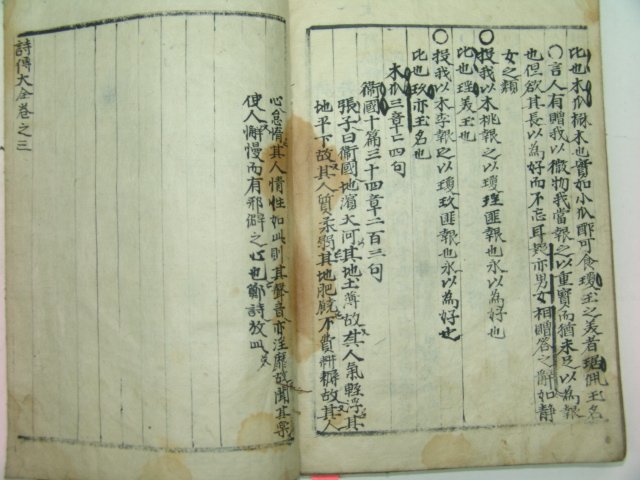 比也木瓜楙木也實如小瓜酢可食瓊玉之美者琚佩玉名
○言人有贈我以微物我當報之以重寶而猶未足以為報
也但欲其長以為好而不忘耳疑亦男女相贈答之辭如靜
女之類
○投我以木桃報之以瓊瑤匪報也永以為好也
比也瑤美玉也
○投我以木李報之以瓊玖匪報也永以為好也
比也玖亦玉名也
木瓜三章章四句
衛國十篇三十四章二百三句
張子曰衛國地濱大河其地土薄故其人氣輕浮其
地平下故其人質柔弱其地肥饒不費耕耨故其人
心怠惰其人情性如此則其聲音亦淫靡故聞其樂
使人懈慢而有邪僻之心也鄭詩放此
詩傳大全卷之三